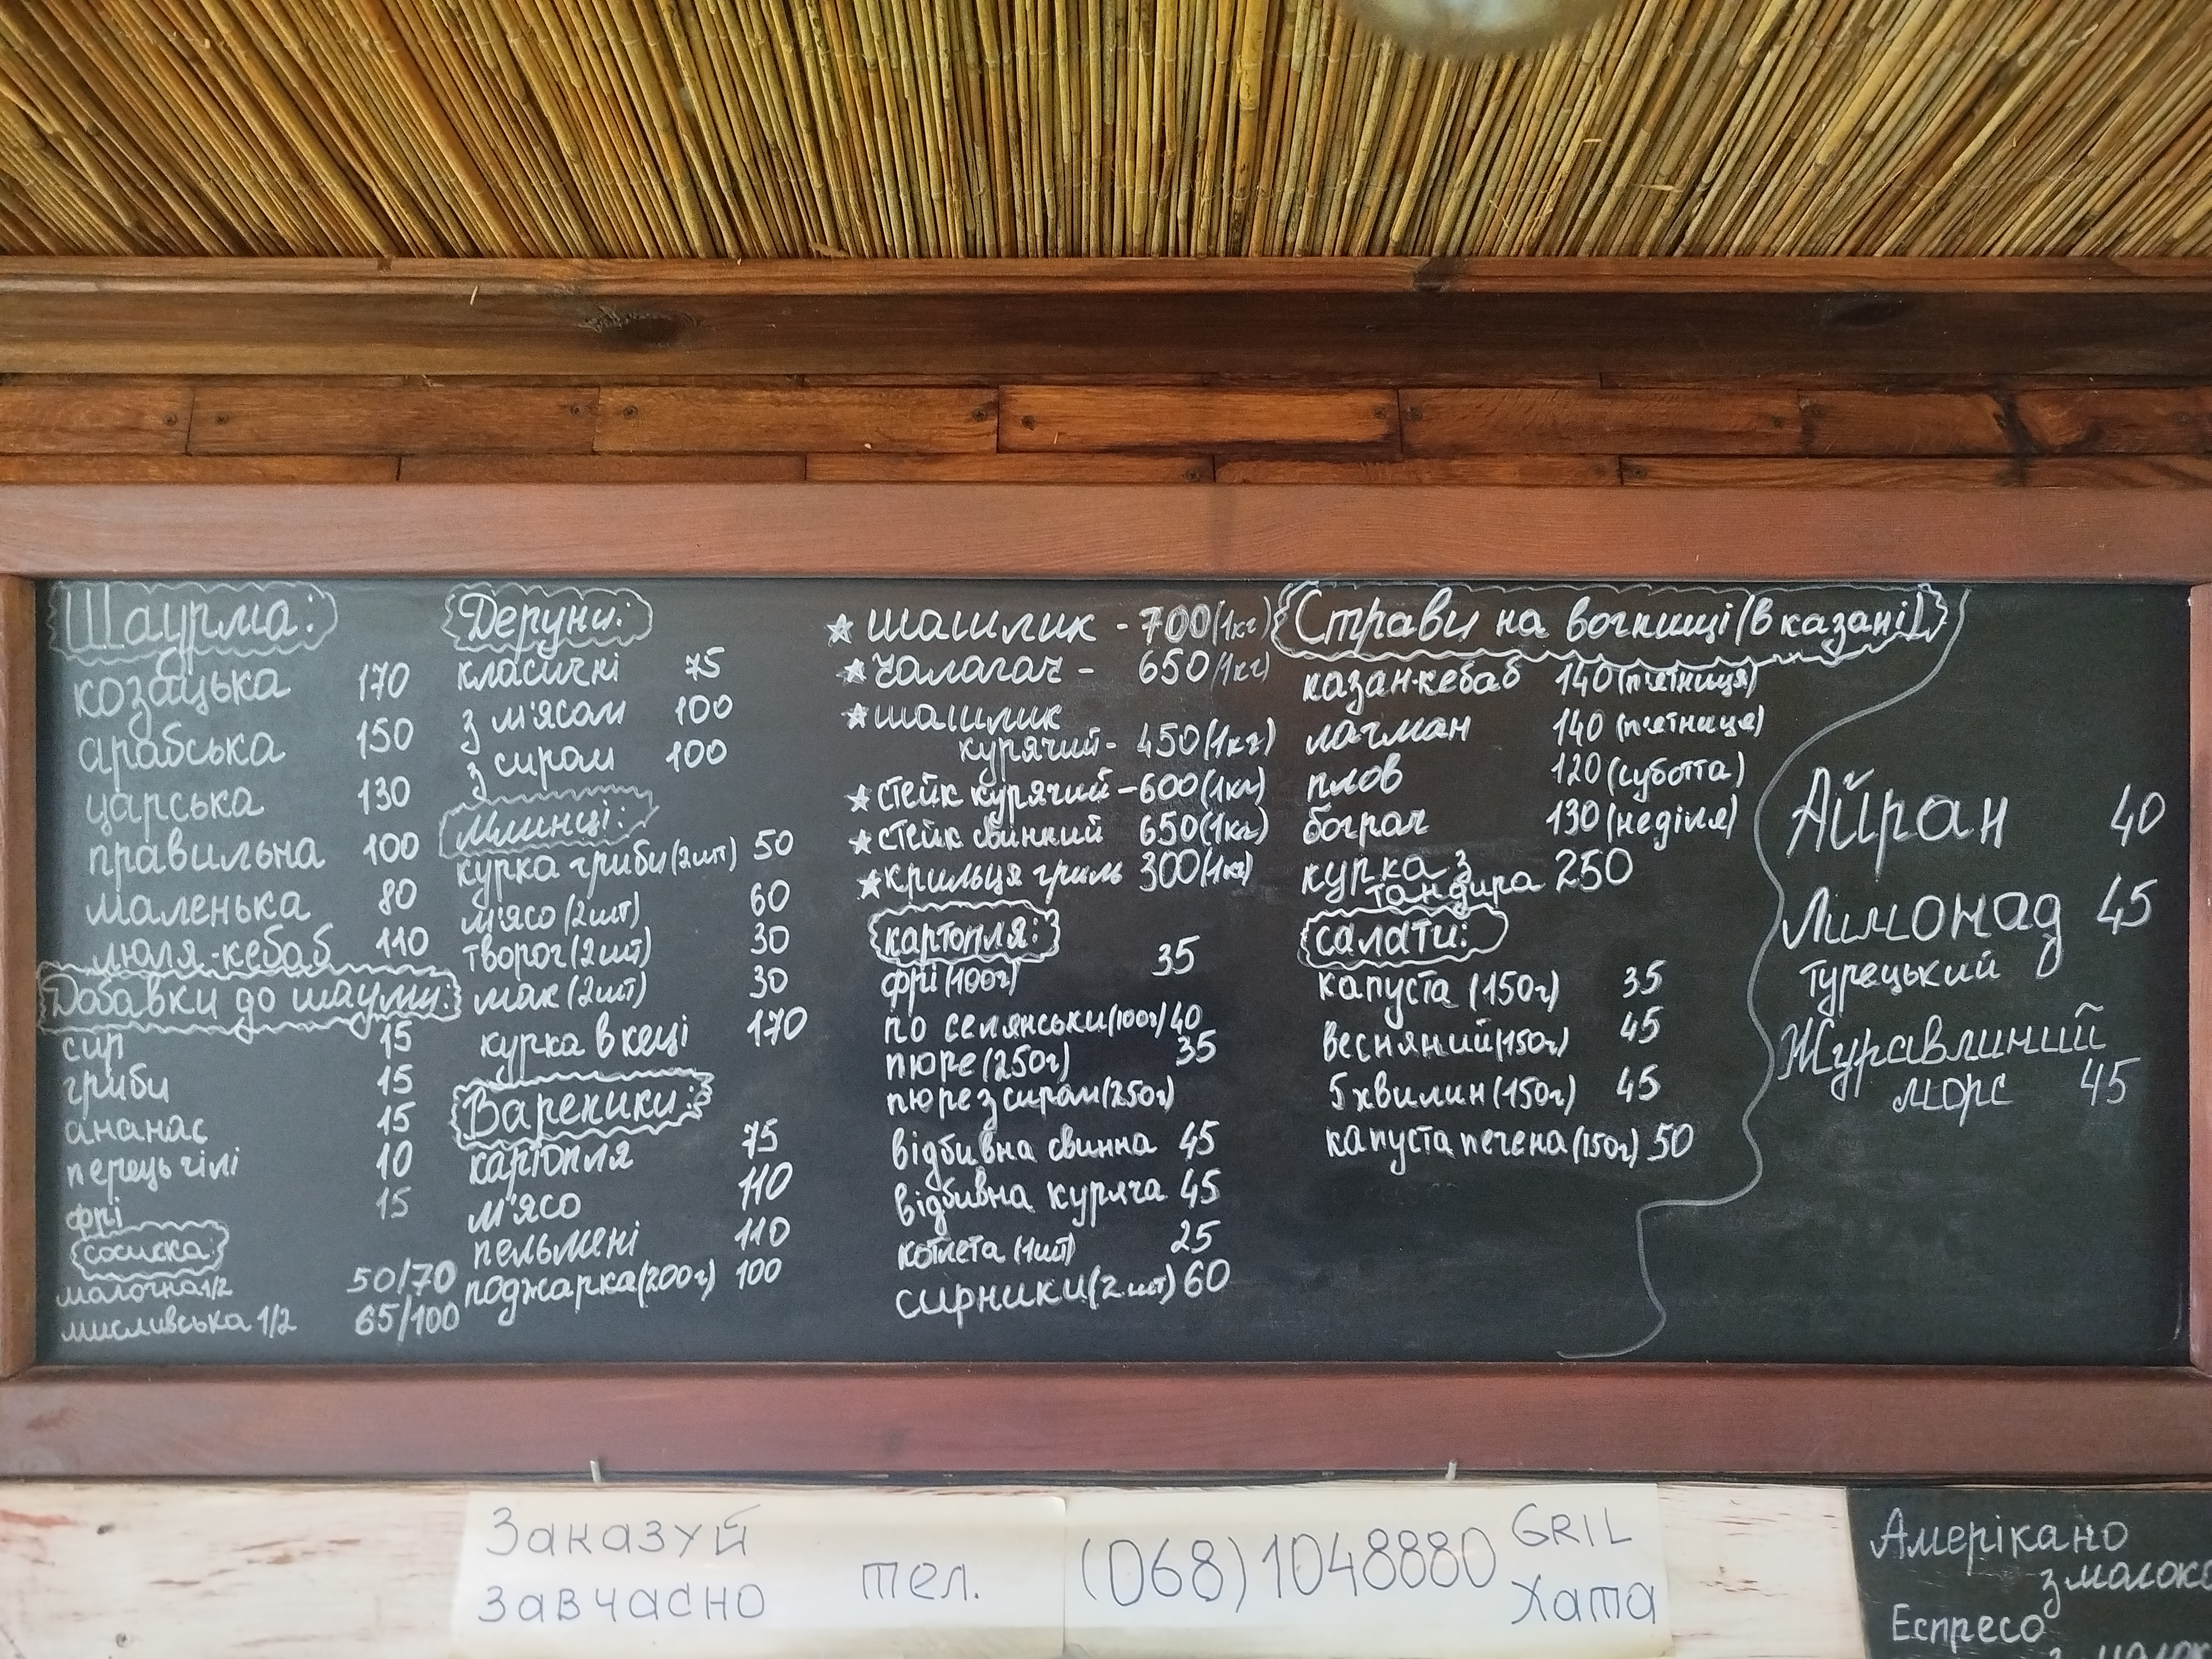 Шаурма:
козацька 170
арабська 150
царська 130
правильна 100
маленька 80
люля-кебаб 110
Добавки до шауми:
сир 15
гриби 15
ананас 15
перець чілі 10
фрі 15
сосиска:
молочна 1/2 50/70
мисливська 1/2 65/100
Деруни:
класичні 75
з м'ясом 100
з сиром 100
Млинці:
курка гриби (2шт) 50
м'ясо (2шт) 60
творог (2шт) 30
мак (2шт) 30
курка в кеці 170
Вареники:
картопля 75
м'ясо 110
пельмені 110
поджарка (200г) 100
★ шашлик - 700 (1кг)
★ чалагач - 650 (1кг)
★ шашлик
курячий - 450 (1кг)
★ стейк курячий - 600 (1кг)
★ стейк свинний 650 (1кг)
★ крильця гриль 300 (1кг)
картопля:
фрі (100г) 35
по селянськи (100г) 40
пюре (250г) 35
пюре з сиром (250г)
відбивна свинна 45
відбивна куряча 45
котлета (1шт) 25
сирники (2шт) 60
Страви на вогнищі (в казані)
казан-кебаб 140 (п'ятниця)
лагман 140 (п'ятниця)
плов 120 (субота)
бограч 130 (неділя)
курка з
тандира 250
салати:
капуста (150г) 35
весняний (150г) 45
5 хвилин (150г) 45
капуста печена (150г) 50
Айран 40
Лимонад 45
турецький
Журавлиний
морс 45
Заказуй
завчасно
тел.
(068) 1048880
GRIL
Хата
Амерікано
з молоко
Еспресо